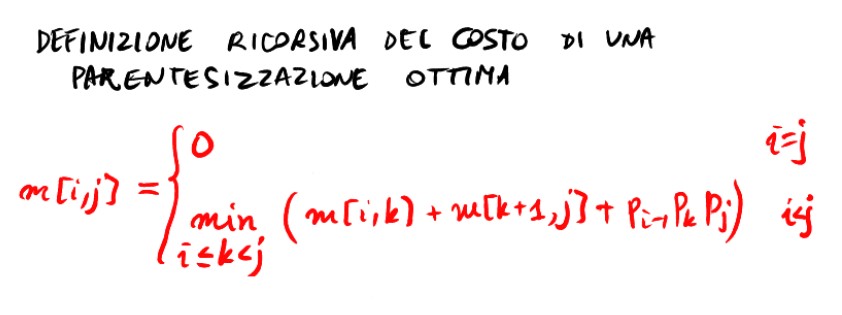 DEFINIZIONE RICORSIVA DEL COSTO DI UNA
PARENTESIZZAZIONE OTTIMA
0 i=j
m[i,j] = {
min (m[i,k] + m[k+1,j] + P_{i-1} P_k P_j) i<j
i≤k<j